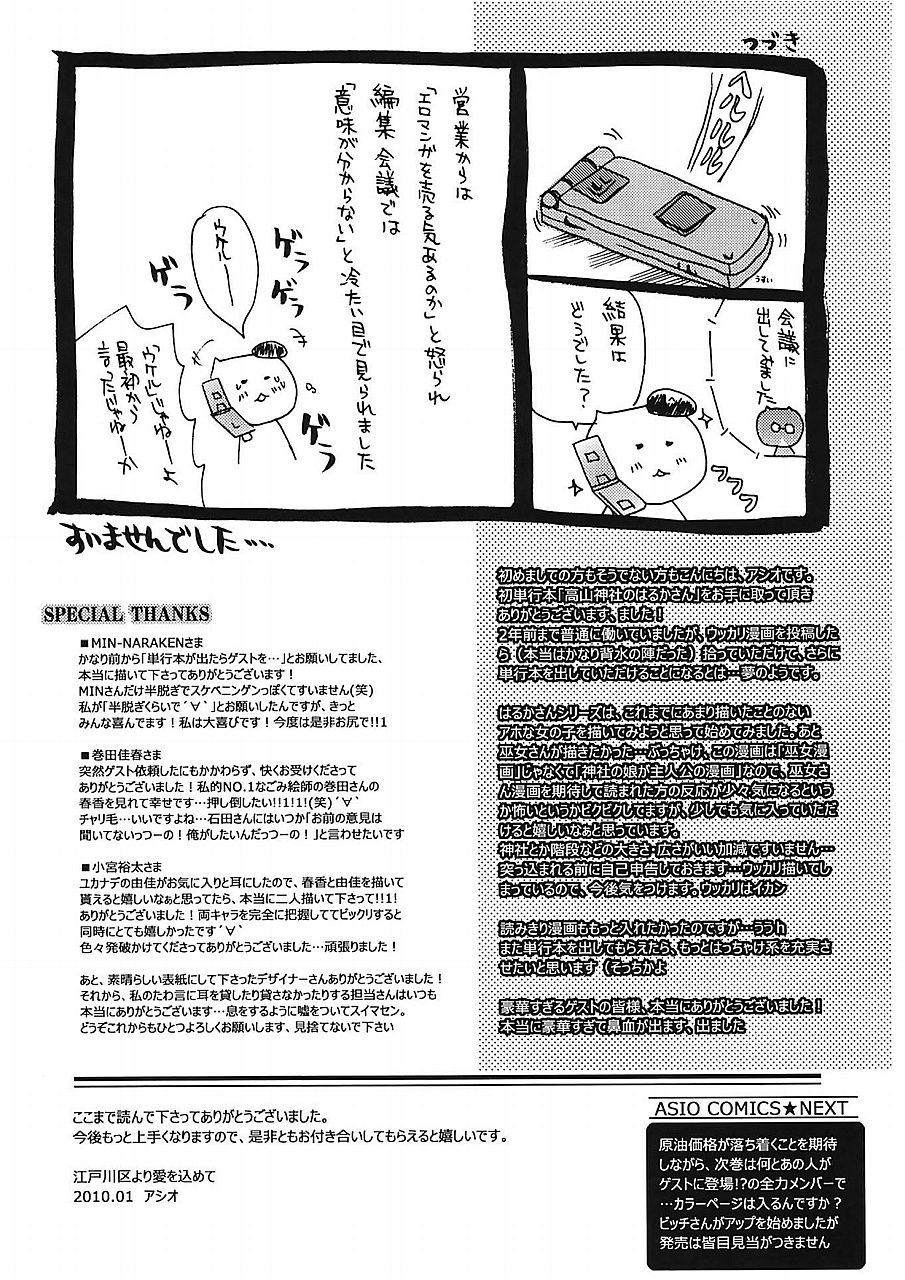 つづき
ヘルルル
うすい
会議に
出してみました
結果は
どうでした?
フフフ
営業からは
「エロマンガを売る気あるのか」と怒られ
編集会議では
「意味が分からない」と冷たい目で見られました
ウケルー
ゲラ
ゲラ
ゲラ
ゲラ
「ウケル」じゃねーよ
最初から
言ったじゃねーか
すいませんでした…
初めましての方もそうでない方もこんにちは、アシオです。
初単行本「高山神社のはるかさん」をお手に取って頂き
ありがとうございます、ました!
2年前まで普通に働いていましたが、ウッカリ漫画を投稿した
ら(本当はかなり背水の陣だった)拾っていただけて、さらに
単行本を出していただけることになるとは…夢のようです。
はるかさんシリーズは、これまでにあまり描いたことのない
アホな女の子を描いてみようと思って始めてみました。あと
巫女さんが描きたかった…ぶっちゃけ、この漫画は「巫女漫
画」じゃなくて「神社の娘が主人公の漫画」なので、巫女さ
ん漫画を期待して読まれた方の反応が少々気になるという
か怖いというかビクビクしてますが、少しでも気に入っていただ
けると嬉しいなぁと思っています。
神社とか階段などの大きさ・広さがいい加減ですいません…
突っ込まれる前に自己申告しておきます…ウッカリ描いてし
まっているので、今後気をつけます。ウッカリはイカン
読みきり漫画ももっと入れたかったのですが…ううh
また単行本を出してもらえたら、もっとはっちゃけ系を充実さ
せたいと思います(そっちかよ
豪華すぎるゲストの皆様、本当にありがとうございました!
本当に豪華すぎて鼻血が出ます、出ました
SPECIAL THANKS
■MIN-NARAKENさま
かなり前から「単行本が出たらゲストを…」とお願いしてました、
本当に描いて下さってありがとうございます!
MINさんだけ半脱ぎでスケベニンゲンっぽくてすいません(笑)
私が「半脱ぎくらいで´∀`」とお願いしたんですが、きっと
みんな喜んでます!私は大喜びです!今度は是非お尻で!!1
■巻田佳春さま
突然ゲスト依頼したにもかかわらず、快くお受けくださって
ありがとうございました!私的NO.1なごみ絵師の巻田さんの
春香を見れて幸せです…押し倒したい!!1!1!(笑)´∀`
チャリ毛…いいですよね…石田さんにはいつか「お前の意見は
聞いてないっつーの!俺がしたいんだっつーの!」と言わせたいです
■小宮裕太さま
ユカナデの由佳がお気に入りと耳にしたので、春香と由佳を描いて
貰えると嬉しいなぁと思ってたら、本当に二人描いて下さって!!1!
ありがとうございました!両キャラを完全に把握しててビックリすると
同時にとても嬉しかったです´∀`
色々発破かけてくださってありがとうございました…頑張りました!
あと、素晴らしい表紙にして下さったデザイナーさんありがとうございました!
それから、私のたわ言に耳を貸したり貸さなかったりする担当さんはいつも
本当にありがとうございます…息をするように嘘をついてスイマセン。
どうぞこれからもひとつよろしくお願いします、見捨てないで下さい
ここまで読んで下さってありがとうございました。
今後もっと上手くなりますので、是非ともお付き合いしてもらえると嬉しいです。
江戸川区より愛を込めて
2010.01 アシオ
ASIO COMICS★NEXT
原油価格が落ち着くことを期待
しながら、次巻は何とあの人が
ゲストに登場!?の全力メンバーで
…カラーページは入るんですか?
ビッチさんがアップを始めましたが
発売は皆目見当がつきません